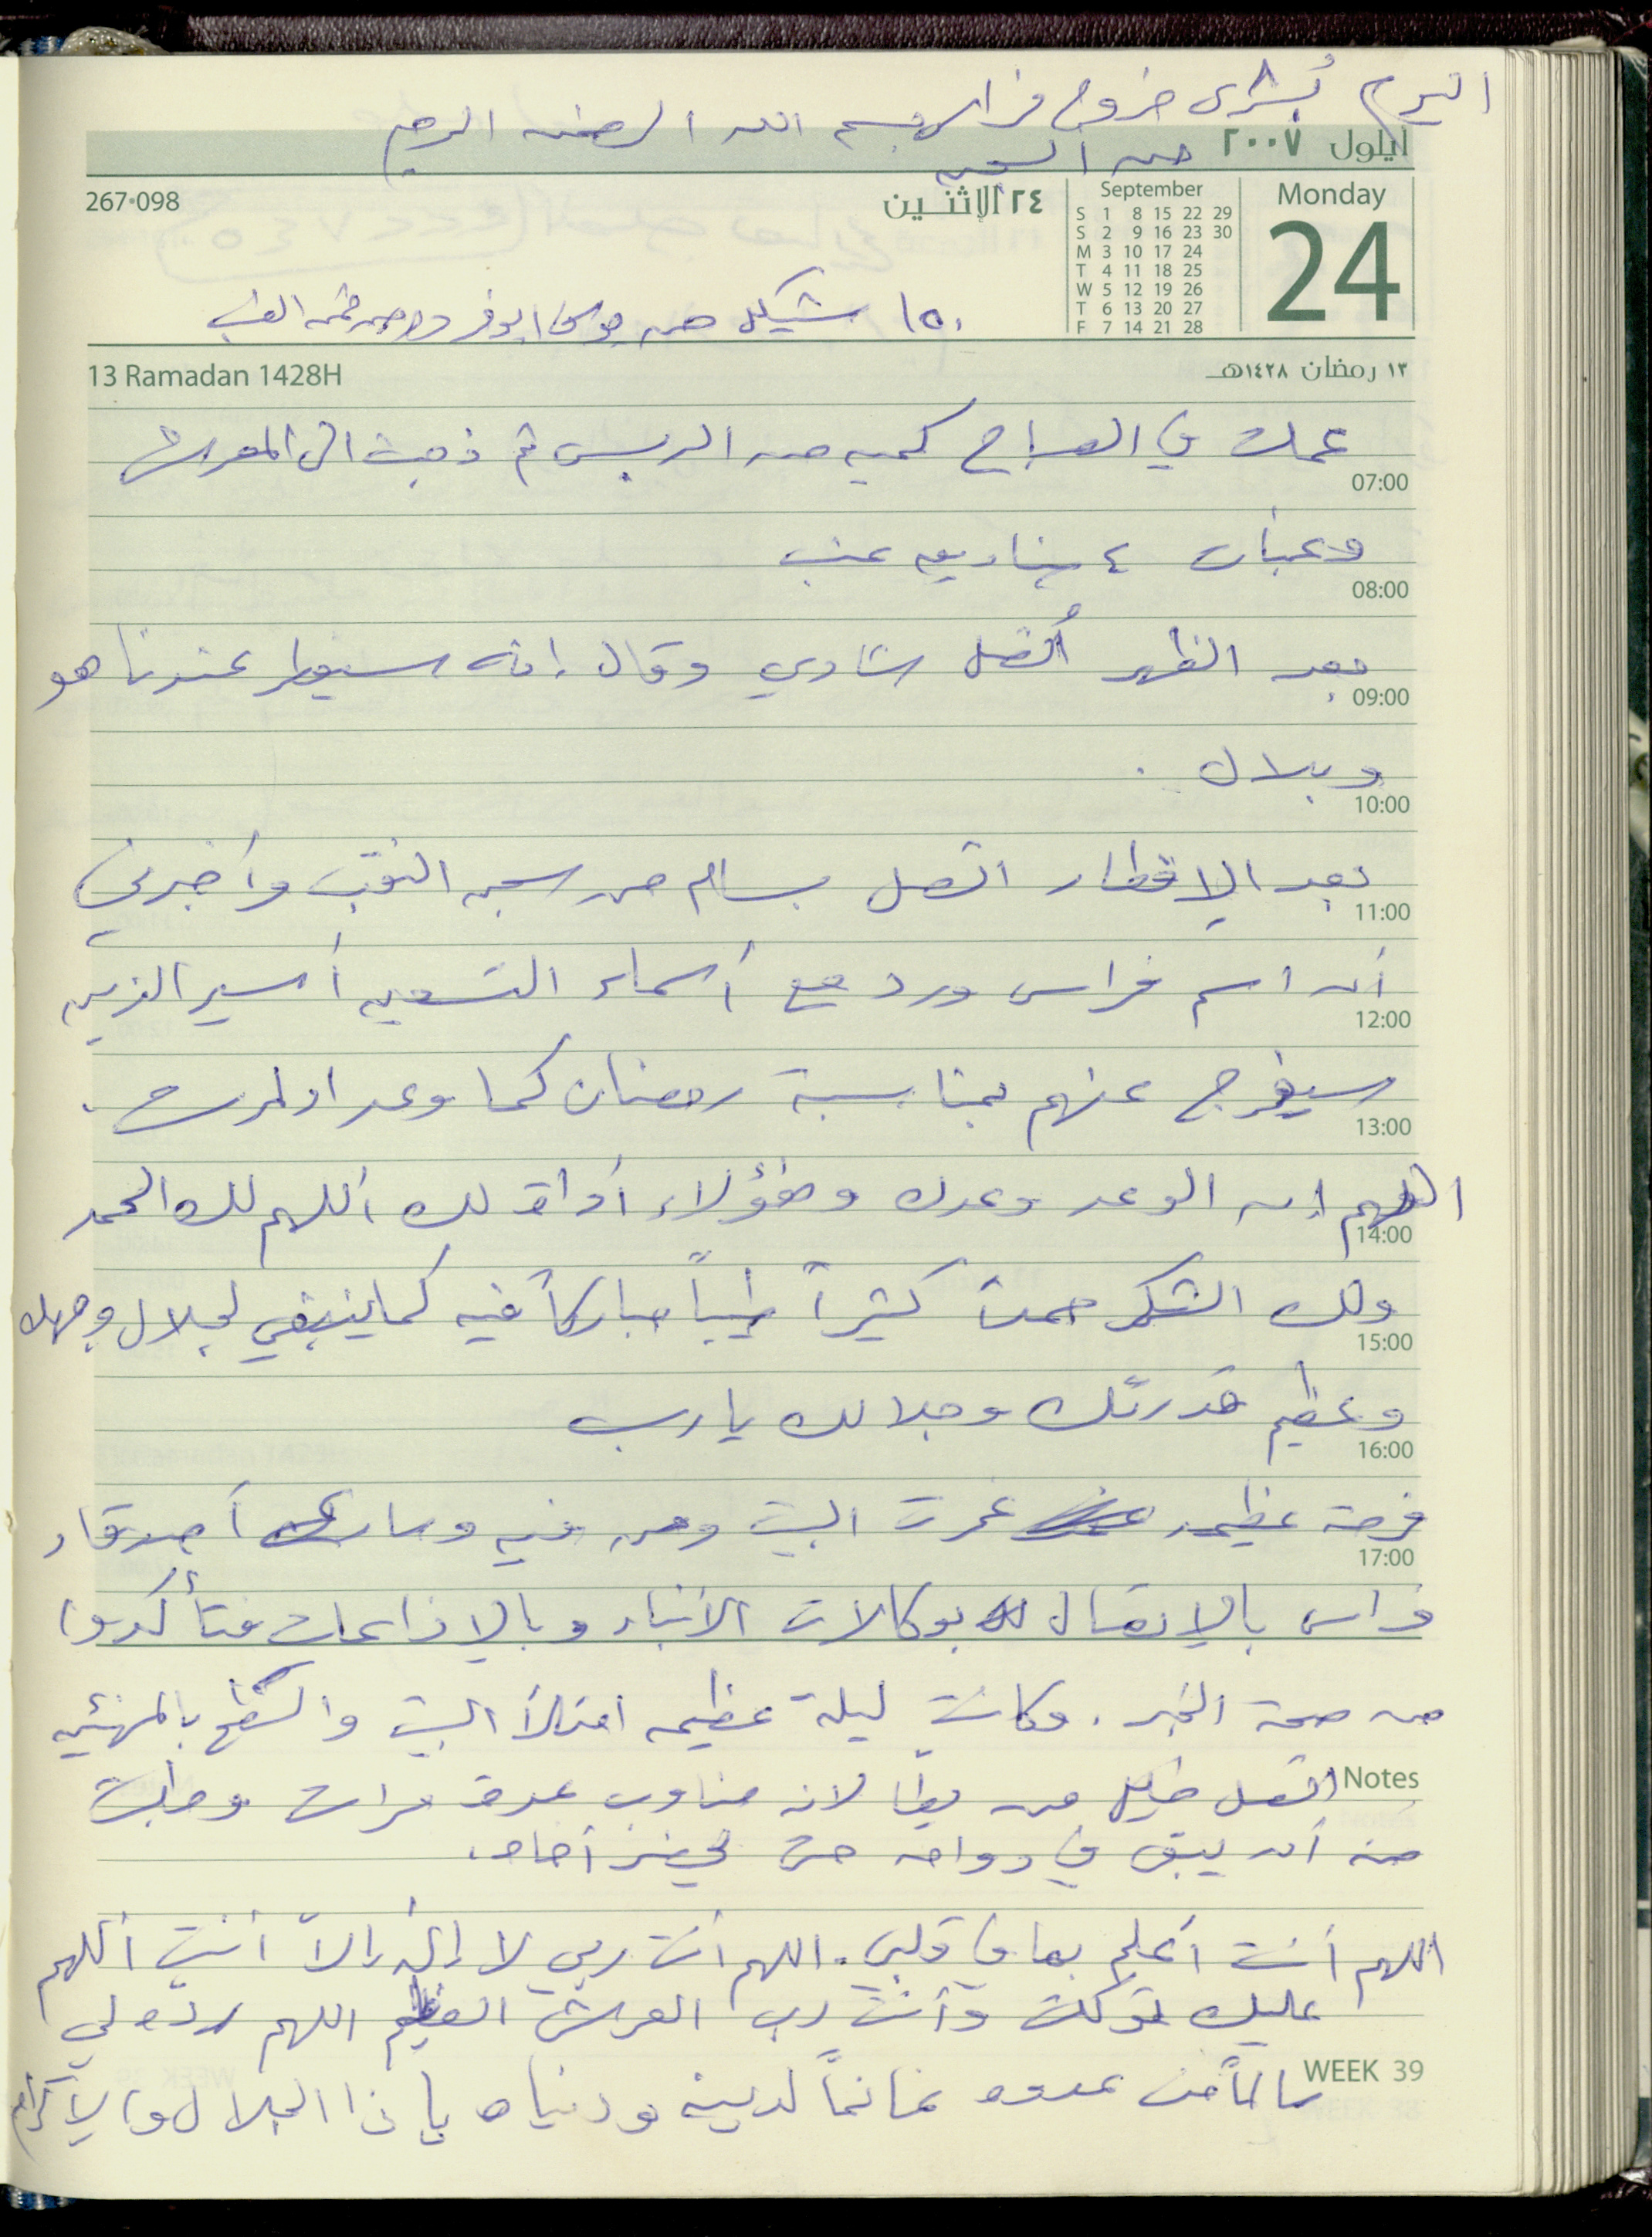 اليوم بُشرى خروج فراس بسم الله الرحمن الرحيم
من السجن
أيلول ٢٠٠٧
267-098
٢٤ الإثنين
September
Monday
24
S 1 8 15 22 29
S 2 9 16 23 30
M 3 10 17 24
T 4 11 18 25
W 5 12 19 26
T 6 13 20 27
F 7 14 21 28
١٥٠ شيكل من موسى ابو فرده من ثمن العنب
13 Ramadan 1428H
١٣ رمضان ١٤٢٨هـ
عملت في الصباح كميه من الدبس ثم ذهبت الى المعرش
07:00
وعبأت ٤ صناديق عنب
08:00
بعد الظهر أتصل شادي وقال إنه سيفطر عندنا هو
09:00
وبلال .
10:00
بعد الإفطار اتصل بسام من سجن النقب وأخبرني
11:00
أن اسم فراس ورد مع أسماء التسعين أسير الذين
12:00
سيفرج عنهم بمناسبة رمضان كما وعد اولمرت .
13:00
اللهم إن الوعد وعدك وهؤلاء أداة لك اللهم لك الحمد
14:00
ولك الشكر حمداً كثيراً طيباً مباركاً فيه كما ينبغي لجلال وجهك
15:00
وعظيم قدرتك وجلالك يا رب
16:00
فرحة عظيمه غمرت البيت ومن فيه وسارع أصدقاء
17:00
فراس بالإتصال بوكالات الأنباء وبالإذاعات فتأكدوا
من صحة الخبر . وكانت ليلة عظيمه امتلأ البيت والسطح بالمهنئين
Notes
اتصل خليل من يطا لانه مناوب عدة مرات وطلبت
منه أن يبقى في دوامه حتى يحضر أخاه .
اللهم أنت أعلم بما في قلبي . اللهم أنت ربي لا إله إلاّ أنت اللهم
عليك توكلت وأنت رب العرش العظيم اللهم ردّه لي
WEEK 39
سالماً من عدوه غانماً لدينه ودنياه يا ذا الجلال والإكرام